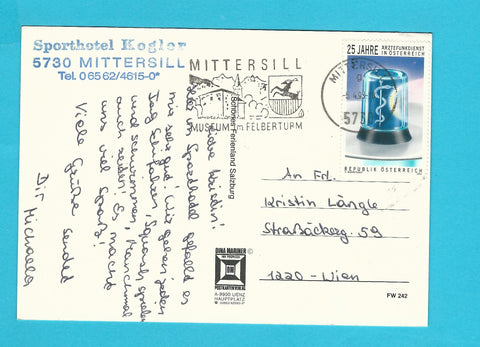 Sporthotel Kogler
5730 MITTERSILL
Tel. 0 65 62/4615-0*
MITTERSILL
MUSEUM im FELBERTURM
Schönes Ferienland Salzburg
MITTERSILL
5730
25 JAHRE ÄRZTEFUNKDIENST
IN ÖSTERREICH
REPUBLIK ÖSTERREICH
Liebe Kristin!
Hier im Sporthotel gefällt es
mir sehr gut! Wir gehen jeden
Tag Schifahren, Squash spielen
und schwimmen, manchmal
auch reiten! Es macht
uns viel Spaß!
Viele Grüße sendet
Dir Michaela
An Frl.
Kristin Längle
Straßäckerg. 59
1220 - Wien
DINA MARINER
POSTKARTENVERLAG
A-9900 LIENZ
HAUPTPLATZ
FW 242